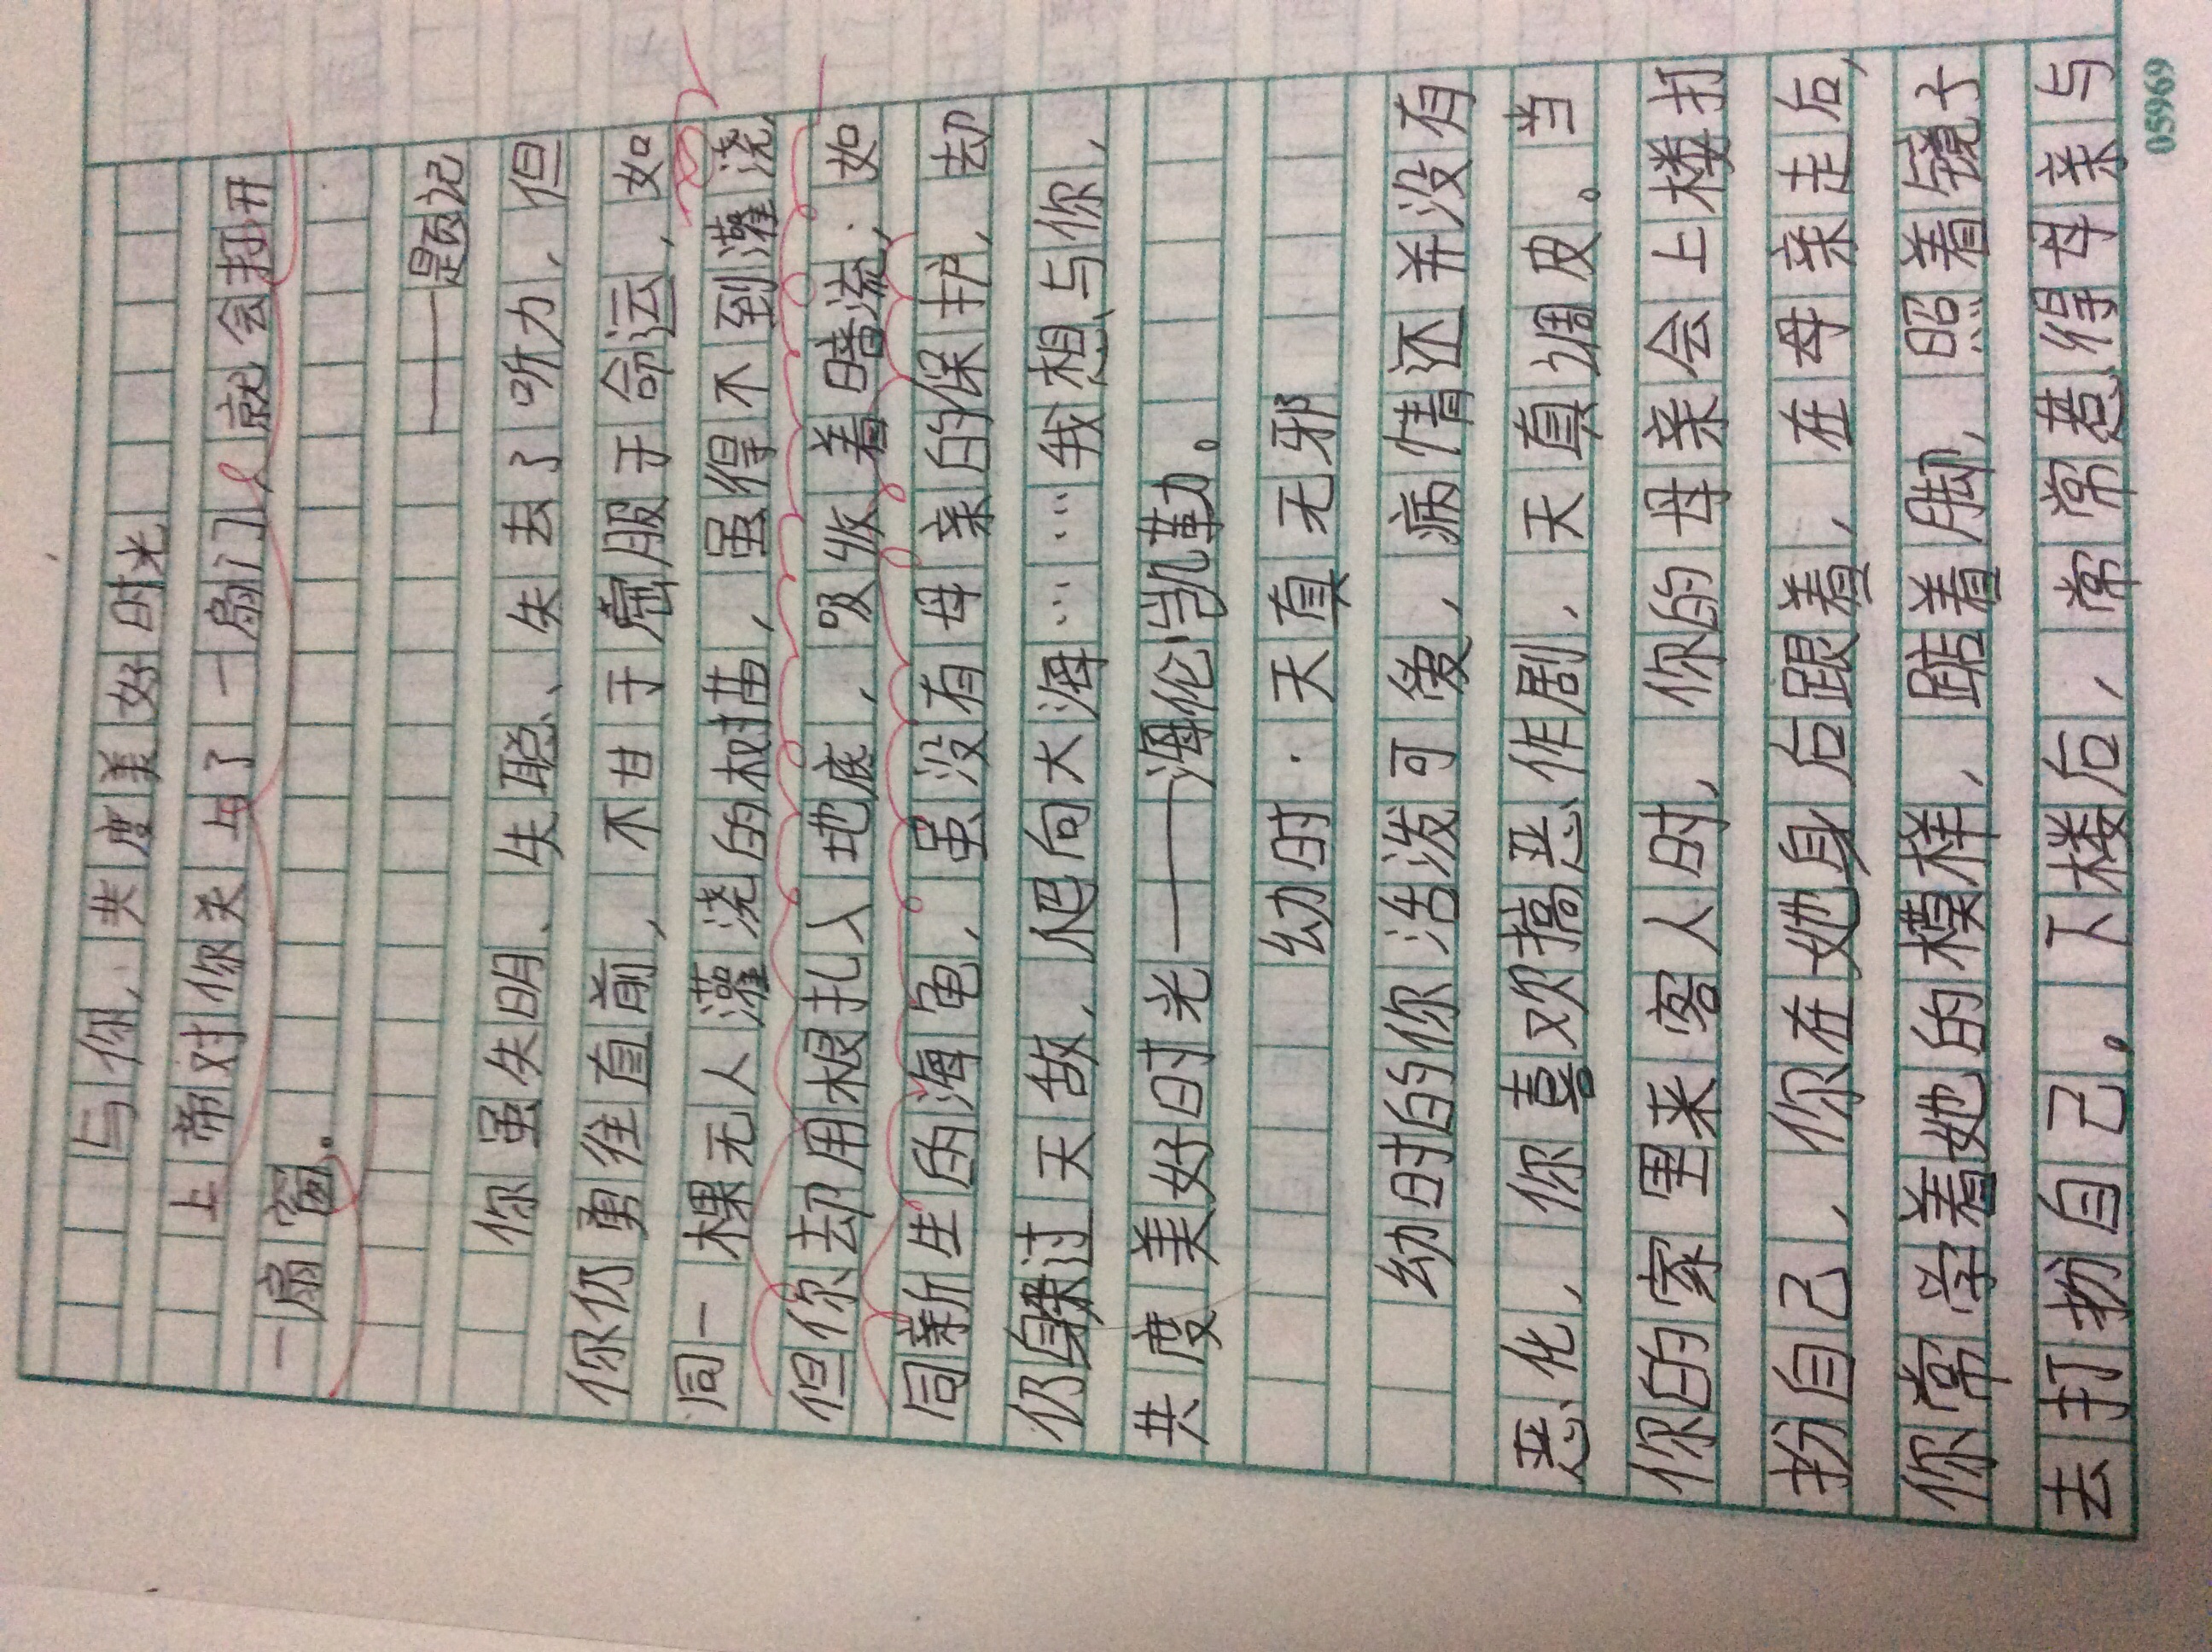 与你，共度美好时光
上帝对你关上了一扇门，就会打开
一扇窗。
——题记
你虽失明、失聪、失去了听力，但
你仍勇往直前，不甘于屈服于命运，如
同一棵无人灌浇的树苗，虽得不到灌浇，
但你却用根扎入地底，吸收着暗流，如
同新生的海龟，虽没有母亲的保护，却
仍躲过天敌，爬向大海……我想与你，
共度美好时光——海伦凯勒。
幼时·天真无邪
幼时的你活泼可爱，病情还并没有
恶化，你喜欢搞恶作剧，天真调皮。当
你的家里来客人时，你的母亲会上楼打
扮自己，你在她身后跟着，在母亲走后，
你常学着她的模样，踮着脚，照着镜子
去打扮自己。下楼后，常常惹得母亲与
05969